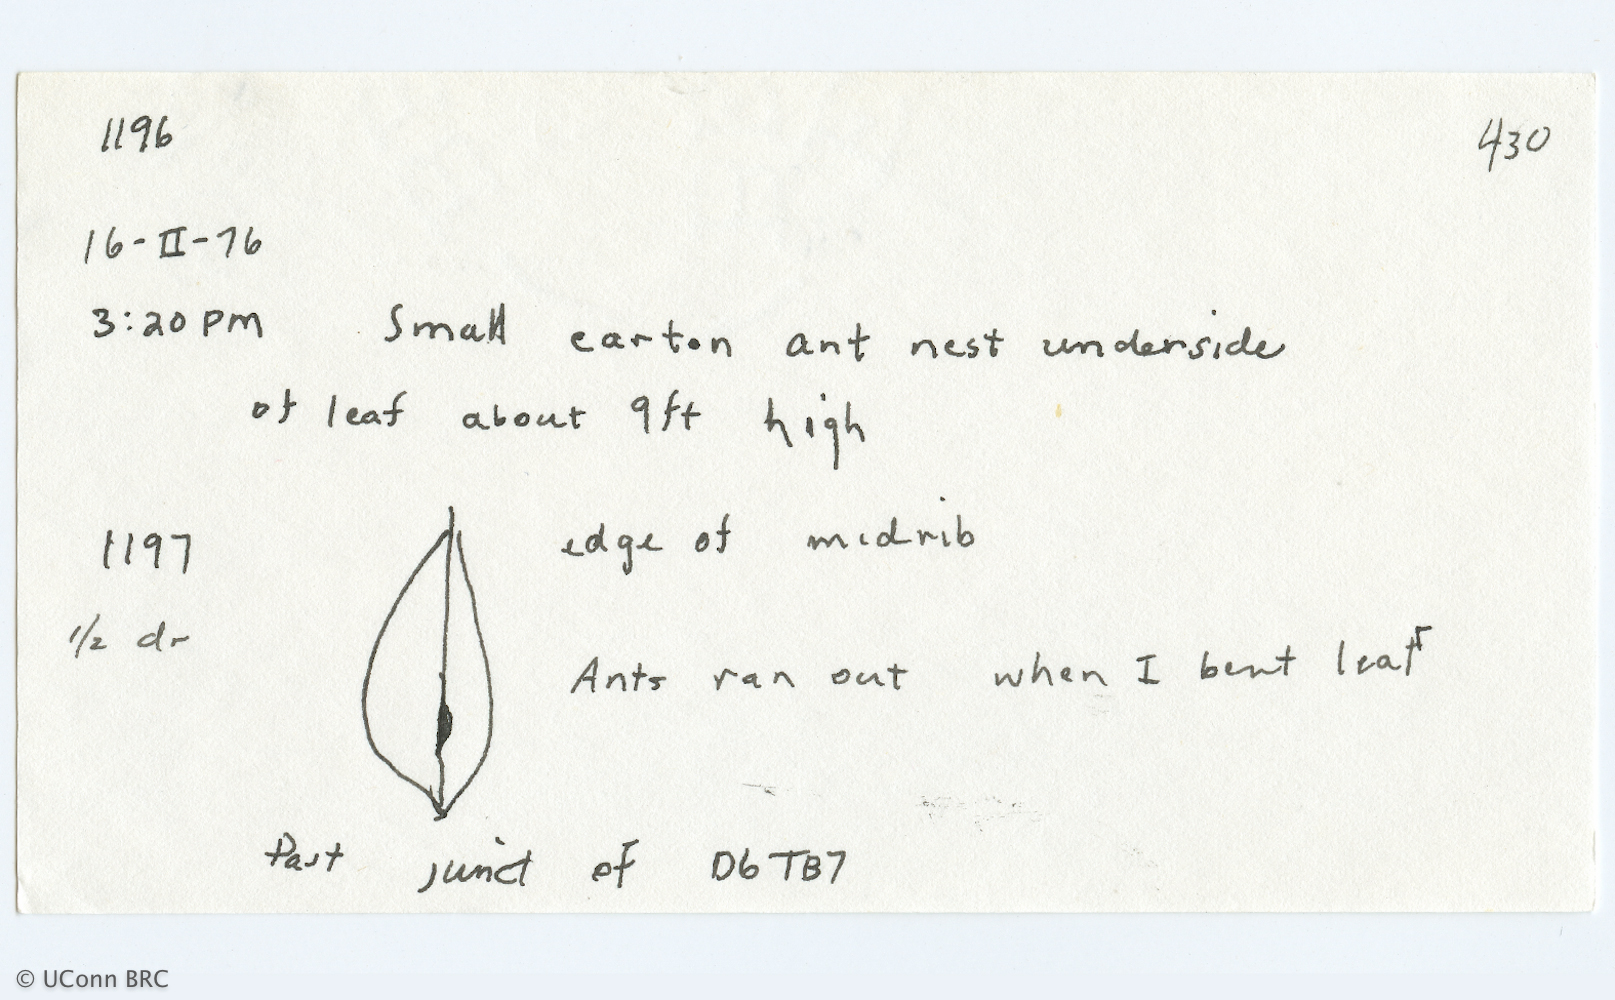 1196
430
16-II-76
3:20 PM Small carton ant nest underside
of leaf about 9ft high
1197
edge of midrib
1/2 dr
Ants ran out when I bent leaf
Past junct of D6TB7
© UConn BRC